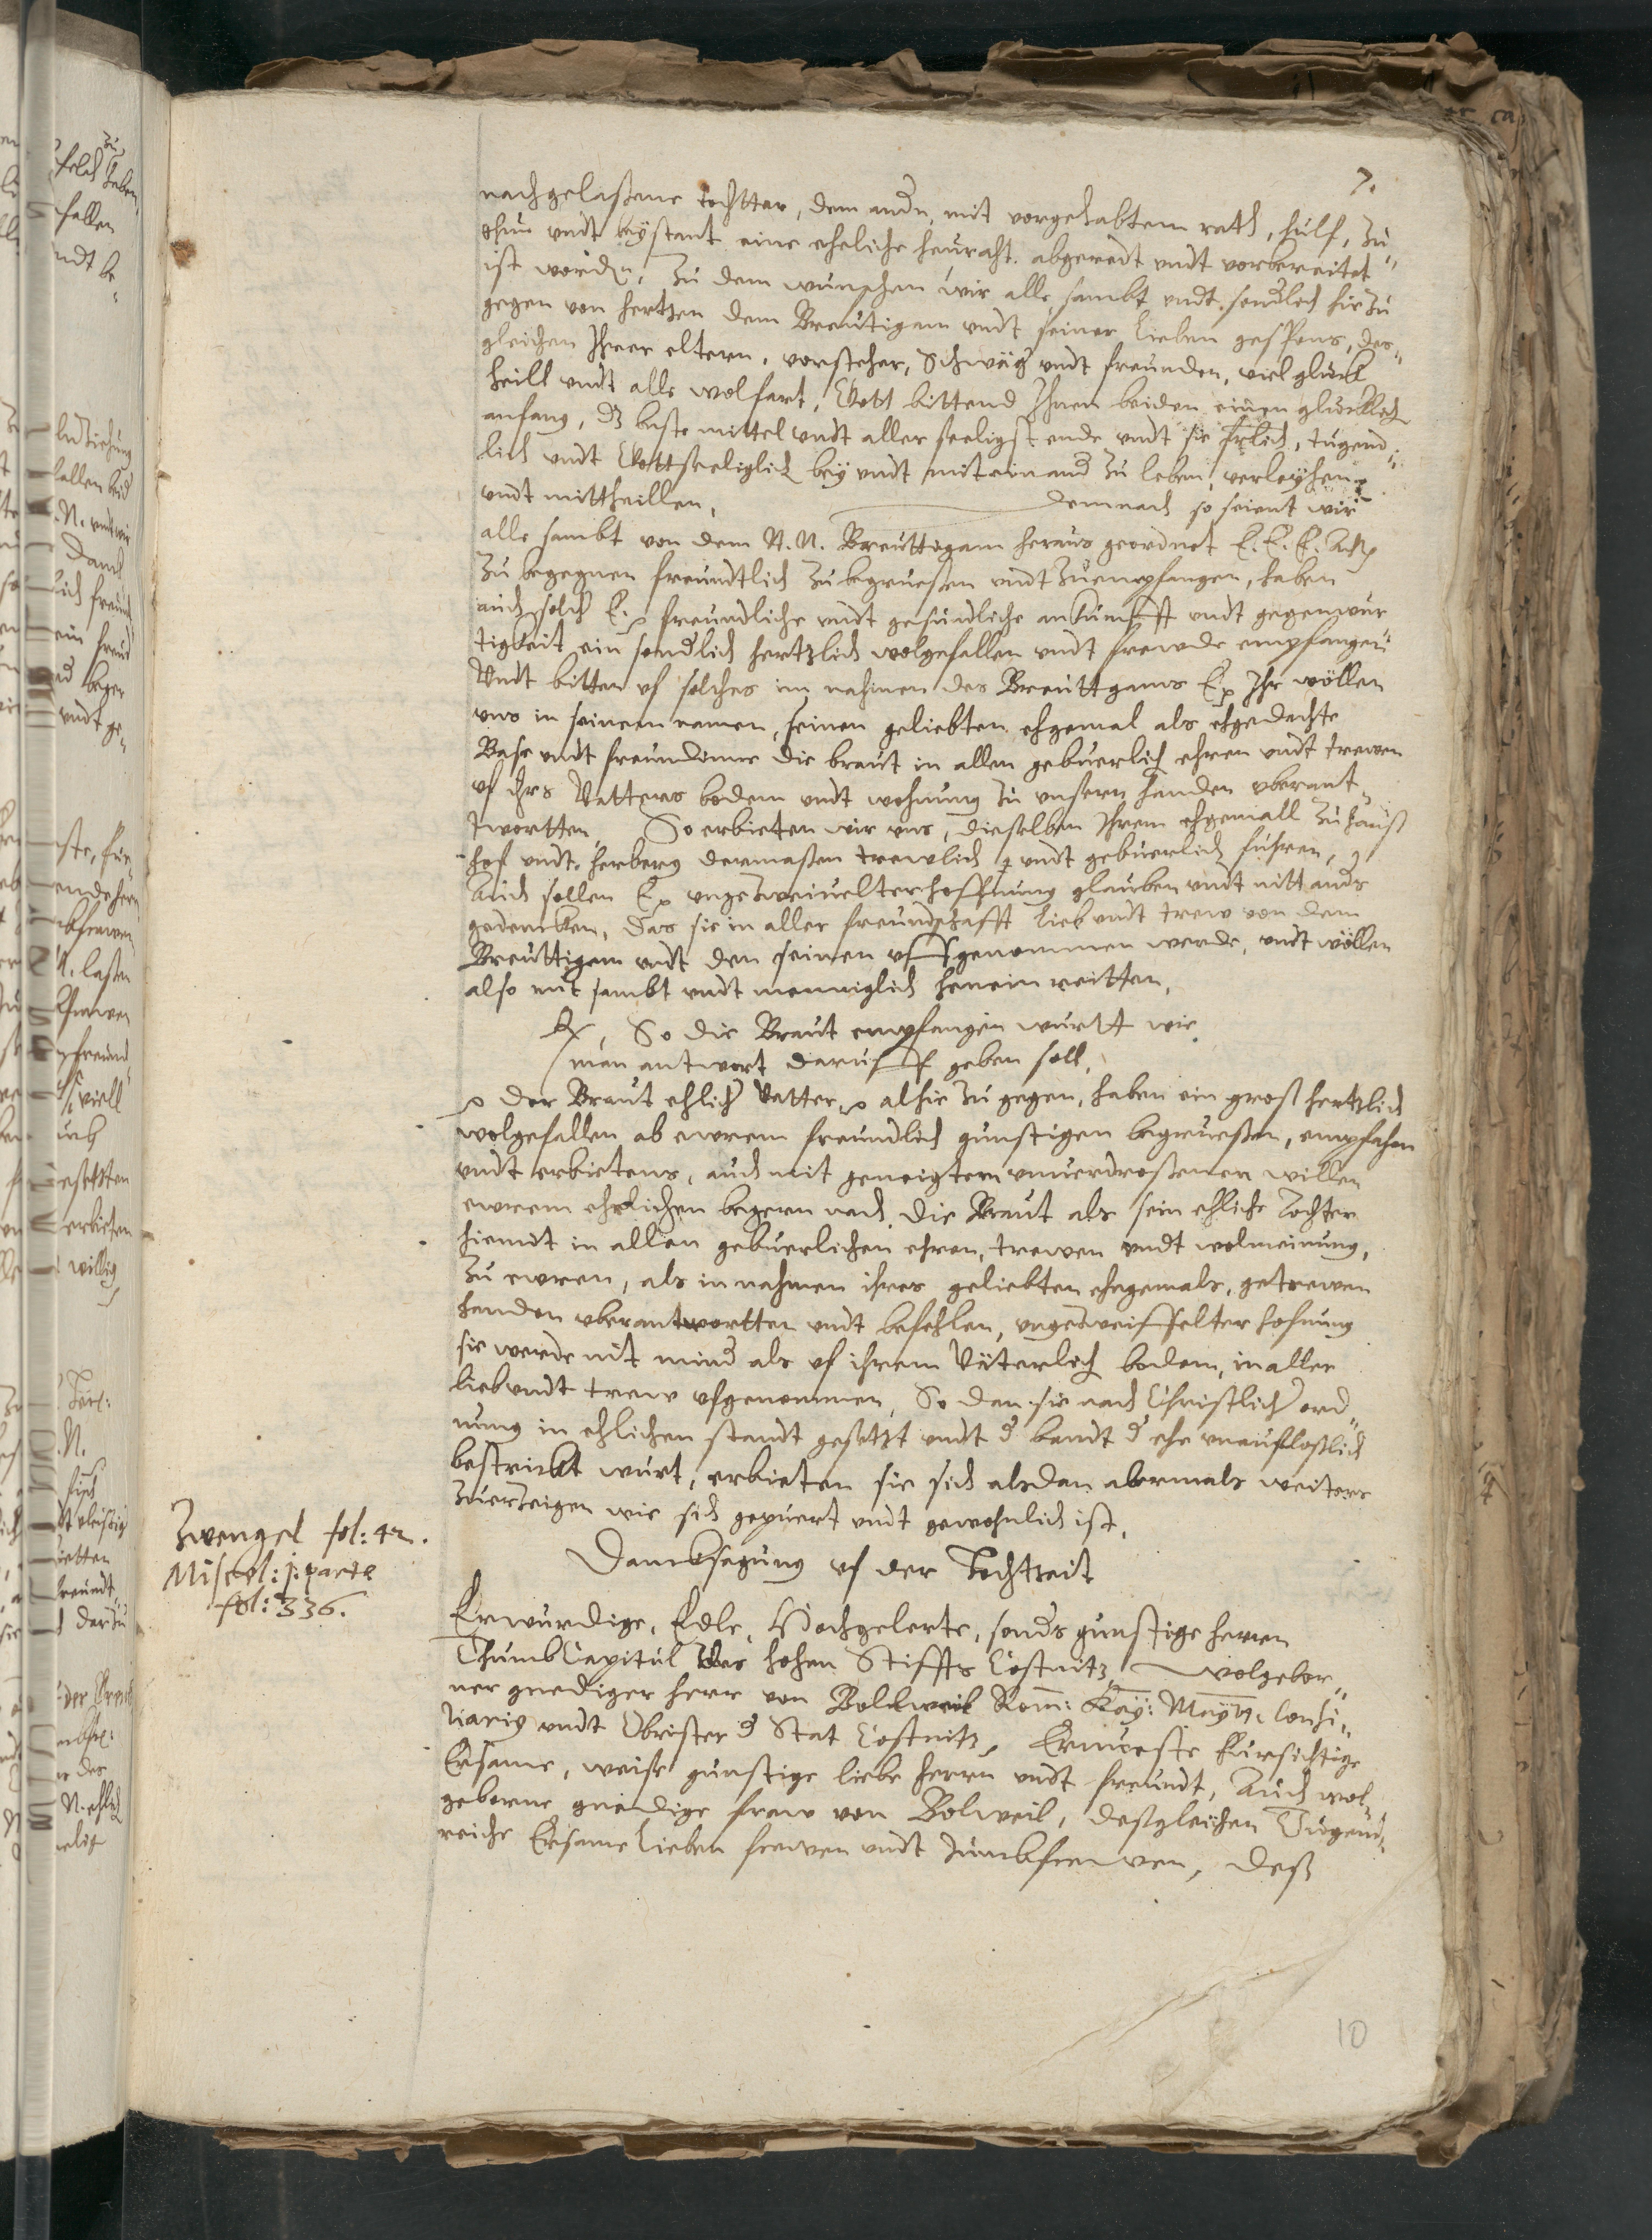 7.
nachgelaßene tochtter, dem andn, mit vorgehabtem rath, hülf, zu
thun vndt beÿstant eine eheliche heuraht. abgeredt vndt vorbereitet
ist worden, Zu dem wünschen wir alle sambt vndt sonderlich hie zu
gegen von hertzen dem Breutigam vndt seiner lieben gespons, des„
gleichen Ihrer eltern, vorsteher, Schwäger vndt freunden, viel glück
heill vndt alle wolfart, Gott bittend Ihnen beiden einen glücklich
anfang, dz beste mittel vndt aller seeligst ende vndt sie Erlich, tugend„
lich vndt Gottseeliglich beÿ vndt miteinander zu leben, verleyhen
vndt mittheillen, demnach so seient wir
alle sambt von dem N. N. Breuttigam heraus geordnet E. E. E. Acht
Zu begegnen freundtlich zu begrueßen vndt zu empfangen, haben
auch solch E. freundliche vndt gesündliche ankumfft vndt gegenwür
tigkeit ein sonderlich hertzlich wolgefallen vndt frewde empfangen
Vndt bitten vf solches im nahmen des Breuttgams E. Ihr wöllen
vns in seinem namen, seinen geliebten ehgemal als ehgedachte
Base vndt freundinne die braut in allen gebuerlich ehren vndt trewen
vf ihrs Vatters bodem vndt wohnung zu vnsern handen vberant
twortten, So erbieten wir vns, dieselben Ihrem ehgemall zu hauß
hof vndt herberg dermaßen trewlich vndt gebuerlich führen,
Auch sollen E. vngezweiuelter hoffnung glauben vndt nitt anders
gedencken, das sie in aller freundschafft lieb vndt trew von dem
Breuttigam vndt den seinen vffgenommen werde, vndt wöllen
also mit sambt vndt menniglich hinein reitten,
So die Braut empfangen wurtt wie
man antwort daruff geben soll,
der Braut ehlicher Vatter alhie zu gegen, haben ein groß hertzlich
wolgefallen ab ewrem freundlich gunstigen begrueßen, empfahen
vndt erbietens, auch mit geneigtem vnuerdroßenen willen
ewrem ehrlichen begern nach, die Braut als sein ehliche Tochter
hiemit in allen gebuerlichen ehren, trewen vndt wolmeinung,
Zu ewren, als in nahmen ihres geliebten ehegemals, getrewen
handen vberantwortten vndt befehlen, vngezweiffelter hofnung
sie werde nit minder als vf ihrem Väterlich bodem, in aller
lieb vndt trew vfgenommen, So dan sie nach Christlicher ord„
nung in ehlichen standt gesetzt vndt der bandt der ehe vnaufloßlich
bestrickt wurt, erbieten sie sich alsdan abermals weiters
Zuerzeigen wie sich gepuert vndt gewohnlich ist,
Zwengel fol: 42.
Miscel: p: parte
fol: 336.
Dancksagung vf der Hochtzeit
Erwürdige, Edle, Hochgelerte, sonders gunstige herren
ThumbCapitul des hohen Stiffts Costnitz, wolgebor„
ner gnediger herr von Bollweil Rom: Kaÿ: Maÿtt. Consi„
liarig vndt Obrister der Stat Costnitz, Ernueste fürsichtige
Ersame, weise günstige liebe herren vndt freundt, Auch wol„
geborne gnedige frew von Bolweil, deßgleichen Tugend„
reiche Ersame lieben frewen vndt Jumbfrewen, deß
10